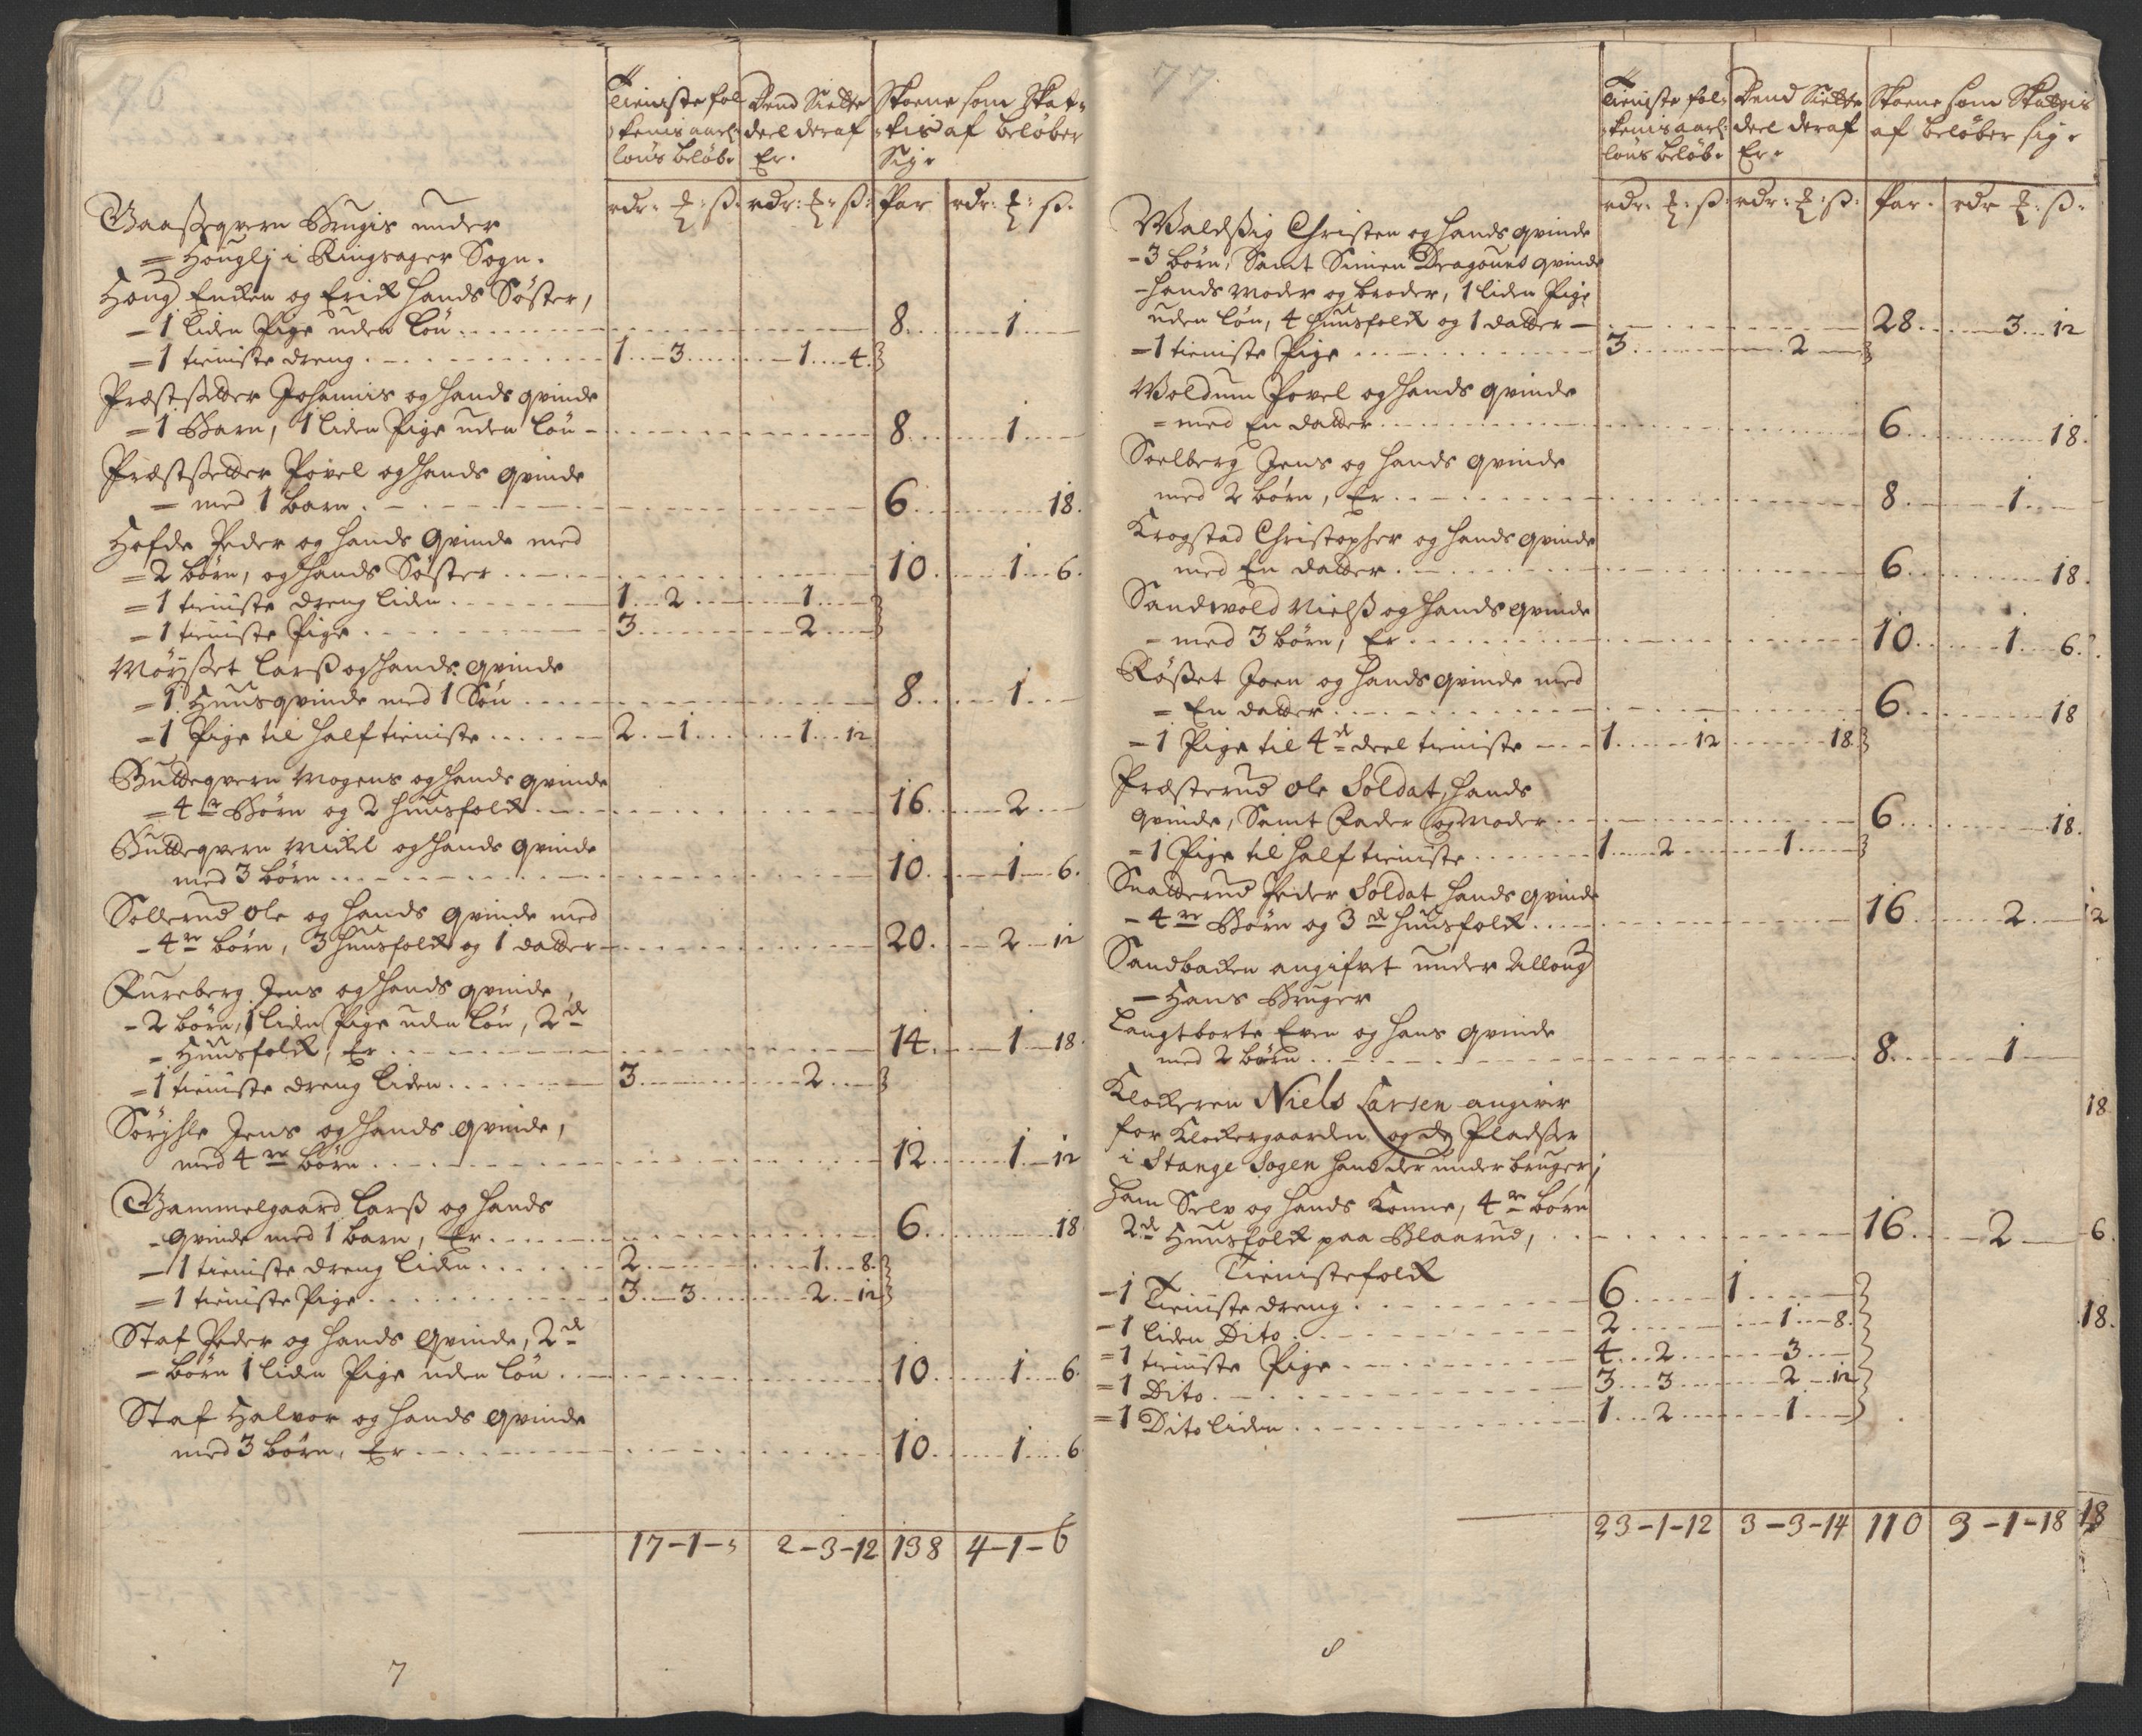 76
Tieniste fol Dend Siette Skoene som Skat-
kenis aarl: deel deraf tis af beløber
løns beløb: Er. Sig.
rdr: ß: rdr: ß: Par rdr: ß.
Gaasseqvern Brugis under
= Houglj i Ringsager Sogn.
Houg Encken og Erick hands Søster,
- 1 liden Pige uden løn 8 1
= 1 tieniste dreng 1 3 1 4
Præstsetter Johannis og hands qvinde
= 1 Barn, 1 liden Pige uden løn 8 1
Præstsetter Povel og hands qvinde
= med 1 barn 6 18.
Hofde Peder og hands Qvinde med
= 2 børn, og hands Søster 10 1 6.
= 1 tieniste dreng liden 1 2 1
= 1 tieniste Pige 3 2
Møysset Larß og hands qvinde
= 1 Huusqvinde med 1 Søn 8 1
= 1 Pige til half tieniste 2 1 1 12
Butteqvern Mogens og hands qvinde
= 4re Børn og 2 huusfolck 16 2
Butteqvern Mickel og hands qvinde
med 3 børn 10 1 6.
Sollerud Ole og hands qvinde med
- 4re børn, 3 huusfolck og 1 datter 20 2 12
Fureberg Jens og hands qvinde,
- 2 børn, 1 liden Pige uden løn, 2de
= Huusfolck, Er 14 1 18
= 1 tieniste dreng liden 3 2
Sørgsle Jens og hands qvinde,
med 4re børn 12 1 12
Gammelgaard Larß og hands
- qvinde med 1 barn, Er 6 18
= 1 tieniste dreng liden 2 1 8
= 1 tieniste Pige 3 3 2 12
Staf Peder og hands Qvinde, 2de
- børn 1 liden Pige uden løn 10 1 6
Staf Halvor og hands qvinde
med 3 børn, Er 10 1 6
17-1-3 2-3-12 138 4-1-6
7
77.
Tieniste fol- Dend Siette Skoene som Skattis
kenis aarl: deel deraf af beløber sig.
løns beløb. Er.
rdr: ß: rdr: ß: Par. rdr ß.
Waldßig Christen og hands qvinde
- 3 børn, Samt Simen Dragouns qvinde
- hands Moder og broder, 1 liden Pige
uden løn, 4 huusfolck og 1 datter 28 3 12
= 1 tieniste Pige 3 2
Woldum Povel og hands qvinde
= med En datter 6 18.
Soelberg Jens og hands qvinde
med 2 børn, Er 8 1
Krogstad Christopher og hands qvinde
med En datter 6 18.
Sandwold Nielß og hands qvinde
- med 3 børn, Er 10 1 6.
Røßet Joen og hands qvinde med
= En datter 6 18
= 1 Pige til 4de deel tieniste 1 12 18
Præsterud Ole Soldat, hands
qvinde, Samt Fader og Moder 6 18.
= 1 Pige til half tieniste 1 2 1
Snatterud Peder Soldat hands qvinde
- 4re Børn og 3de huusfolck 16 2 12
Sandbacken angifvet under Alloug
= Hans Bruger
Langtborte Even og hans qvinde
med 2 børn 8 1
Klockeren Niels Larsen angivir
18
for Klockergaarden og de Pladser
i Stange Sogen hand der under bruger;
Ham Selv og hands Konne, 4re børn
2de Huusfolck paa Blaarud, 16 2 6.
Tienistefolck
- 1 Tieniste dreng 6 1
- 1 liden Dito 2 1 8 18.
= 1 tieniste Pige 4 2 3
= 1 Dito 3 3 2 12
= 1 Dito liden 1 2 1
23-1-12 3-3-14 110 3-1-18 18
8